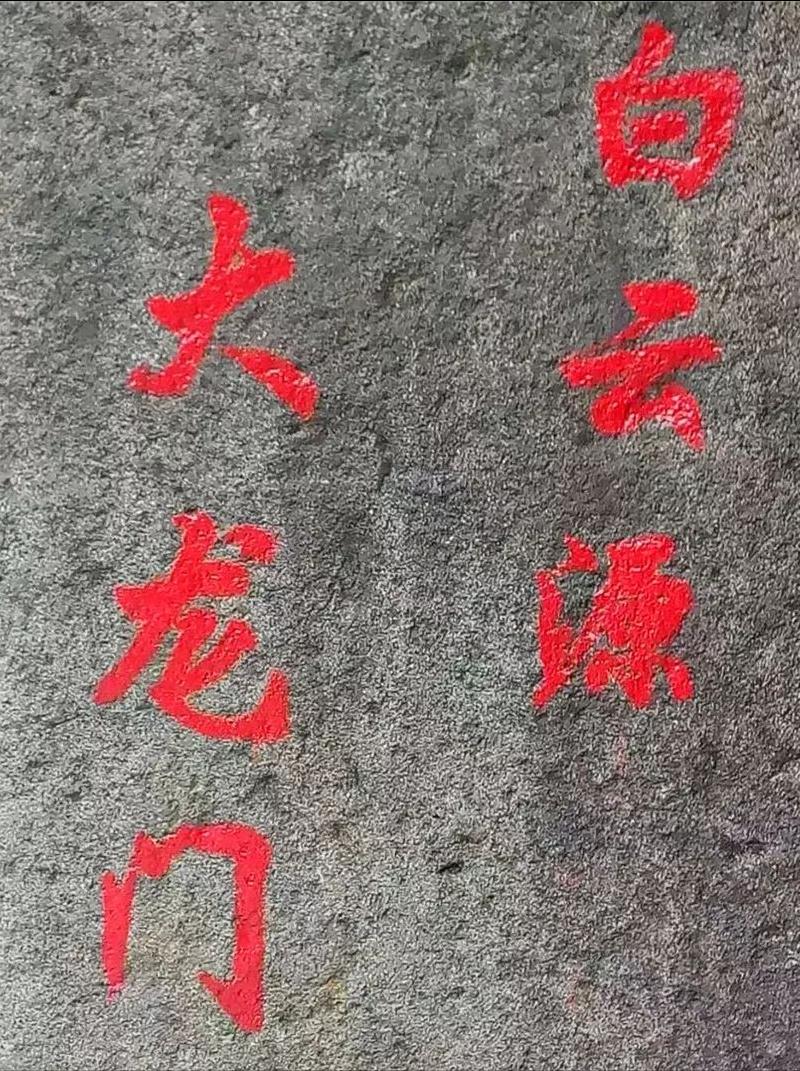 白云源
大龙门